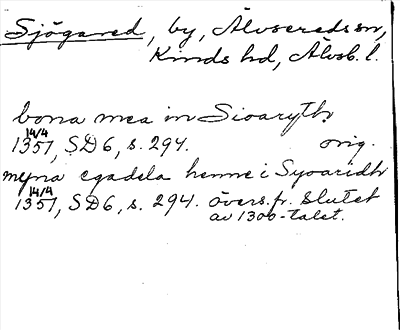 Sjögared, by, Älvsereds sn,
Kinds hd, Älvsb. l.
bona mea in Sioaryth
14/4
1357, SD 6, s. 294. orig.
myna egadela henne i Syoaridh
14/4
1357, SD 6, s. 294. övers. fr. slutet
av 1300-talet.